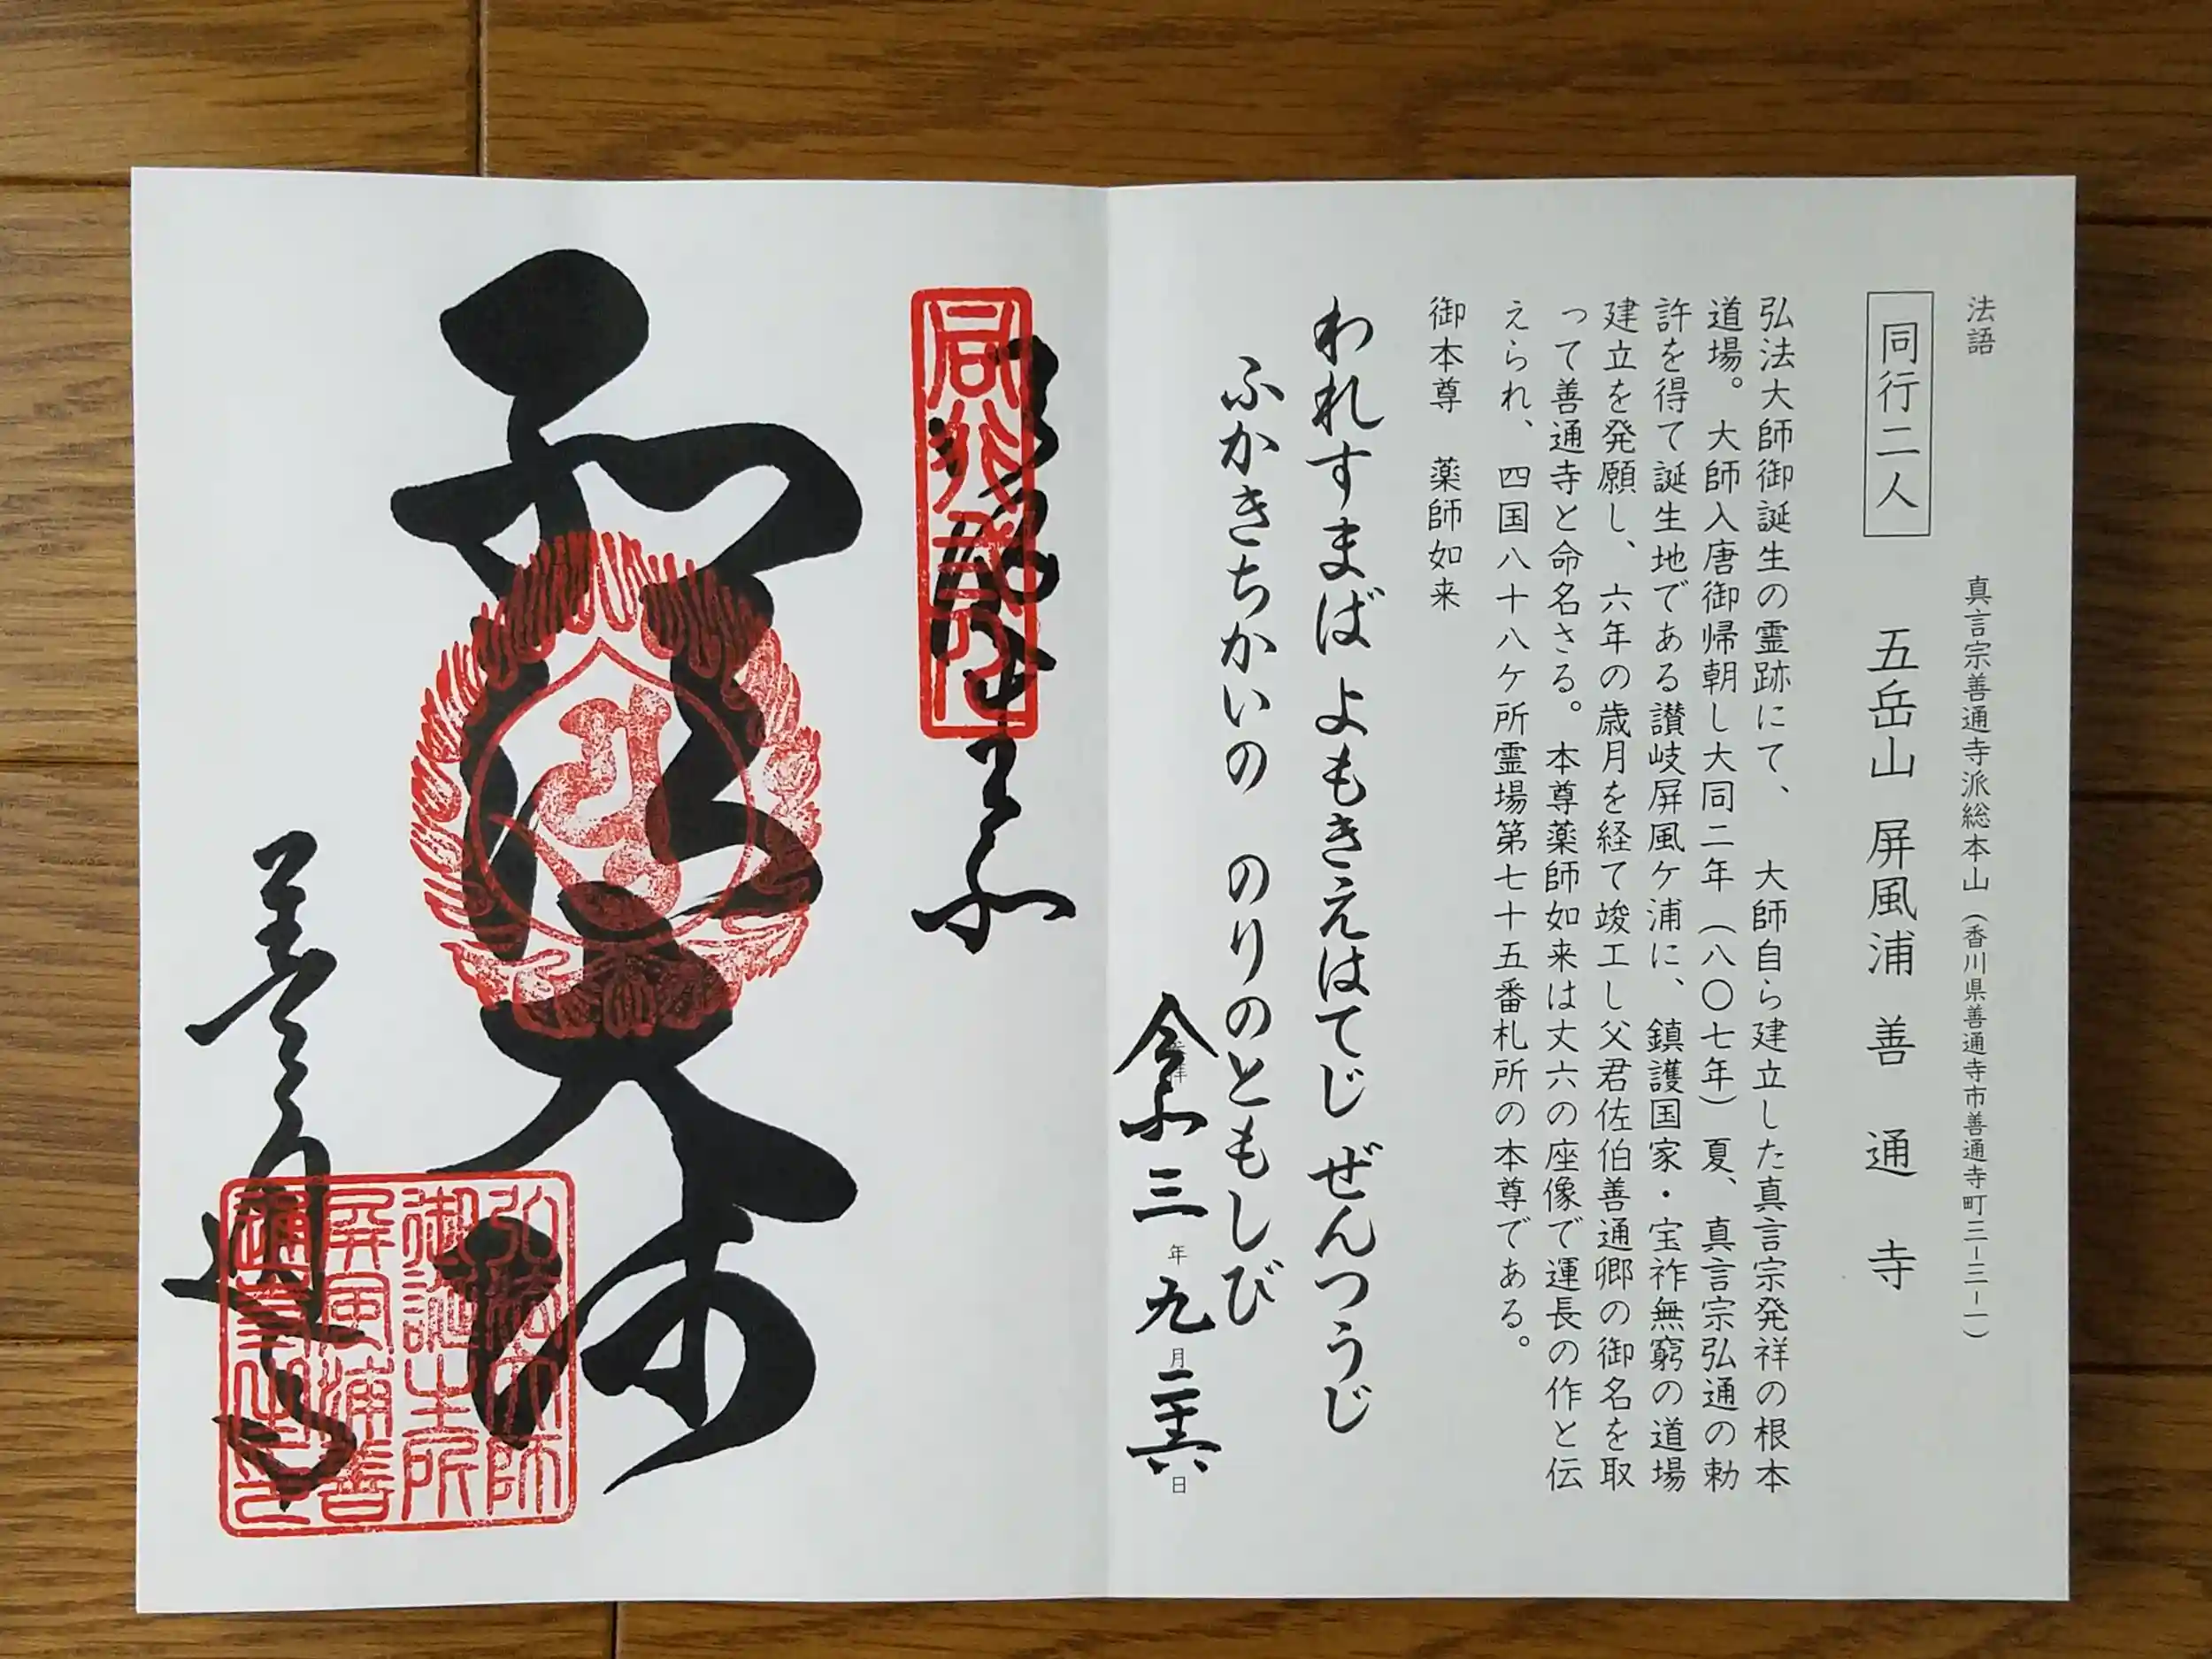 法語　真言宗善通寺派総本山（香川県善通寺市善通寺町三ー三ー一）
同行二人　五岳山 屏風浦 善通寺
弘法大師御誕生の霊跡にて、　大師自ら建立した真言宗発祥の根本
道場。大師入唐御帰朝し大同二年（八〇七年）夏、真言宗弘通の勅
許を得て誕生地である讃岐屏風ケ浦に、鎮護国家・宝祚無窮の道場
建立を発願し、六年の歳月を経て竣工し父君佐伯善通卿の御名を取
って善通寺と命名さる。本尊薬師如来は丈六の座像で運長の作と伝
えられ、四国八十八ケ所霊場第七十五番札所の本尊である。
御本尊　薬師如来
われすまば よもきえはてじ ぜんつうじ
ふかきちかいの　のりのともしび
令和三年九月二十六日
同行二人
弘法大師
弘法大師
御誕生所
屏風浦善
通寺之印
善通寺